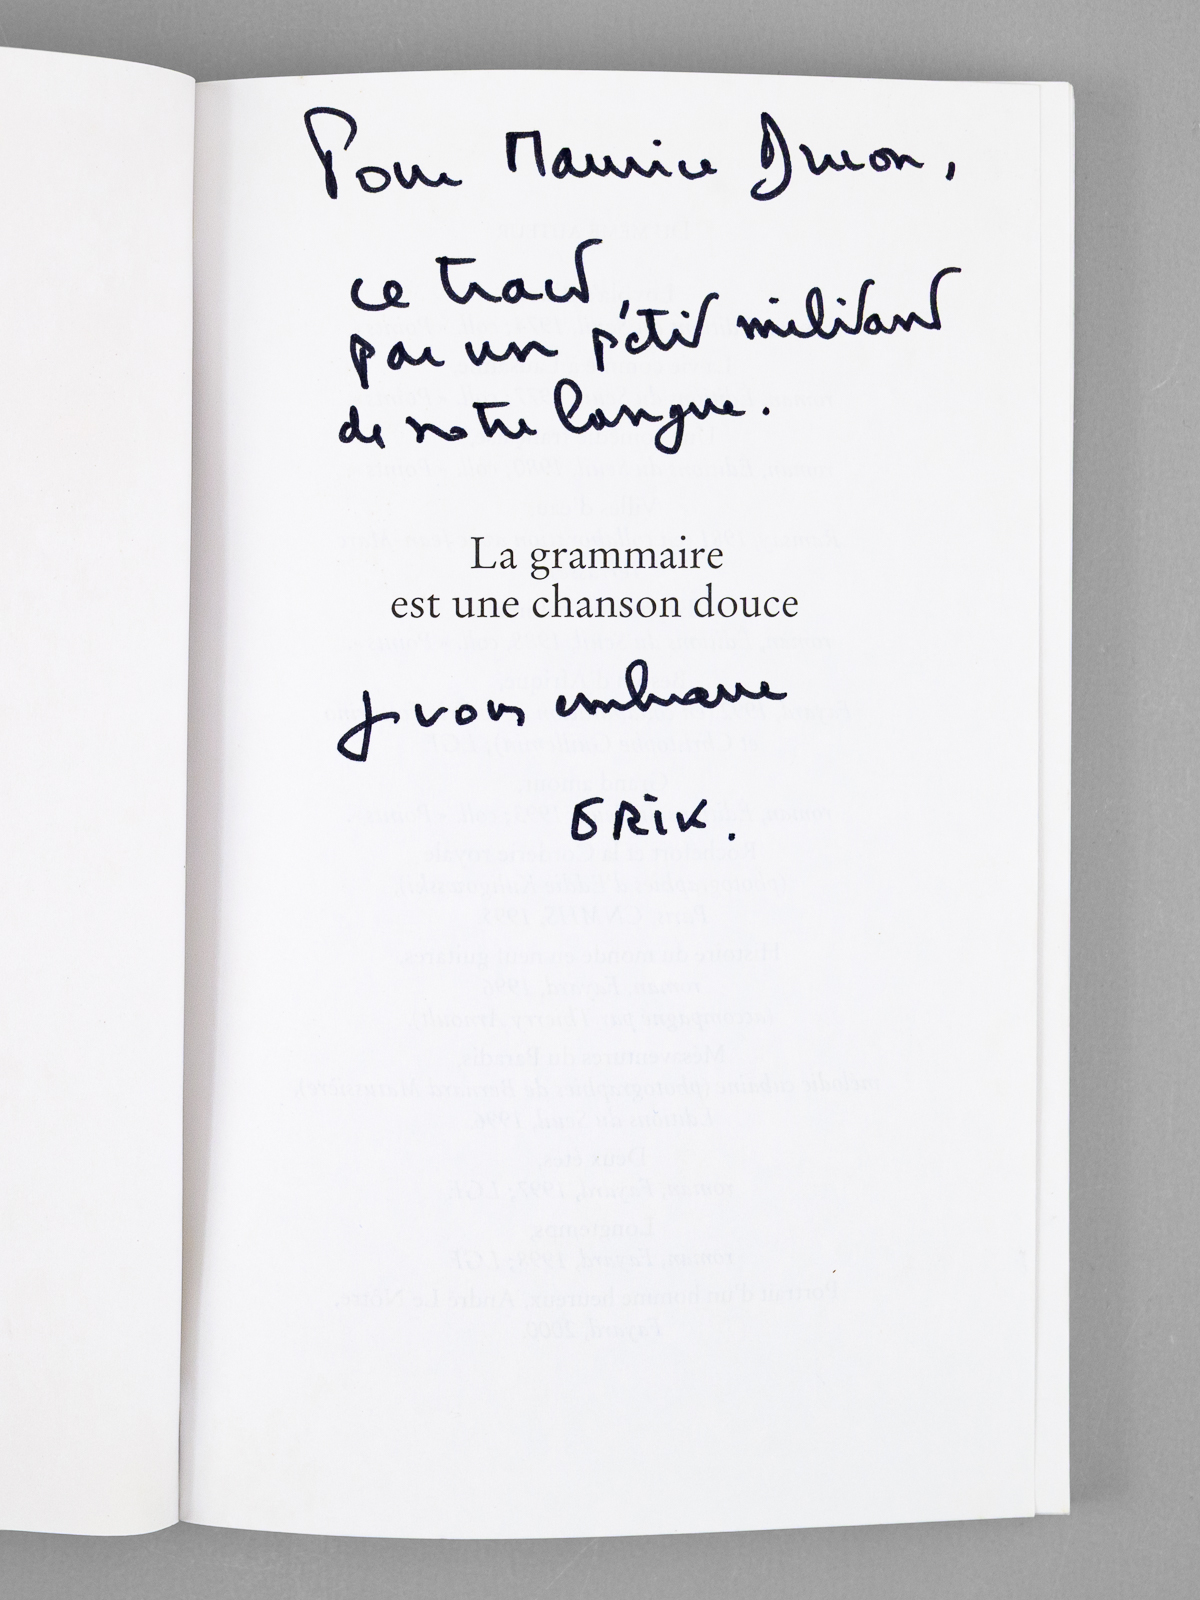 Pour Maurice Druon,
ce tract,
par un p'tit militant
de notre langue.
La grammaire
est une chanson douce
Je vous embrasse
ERIK.